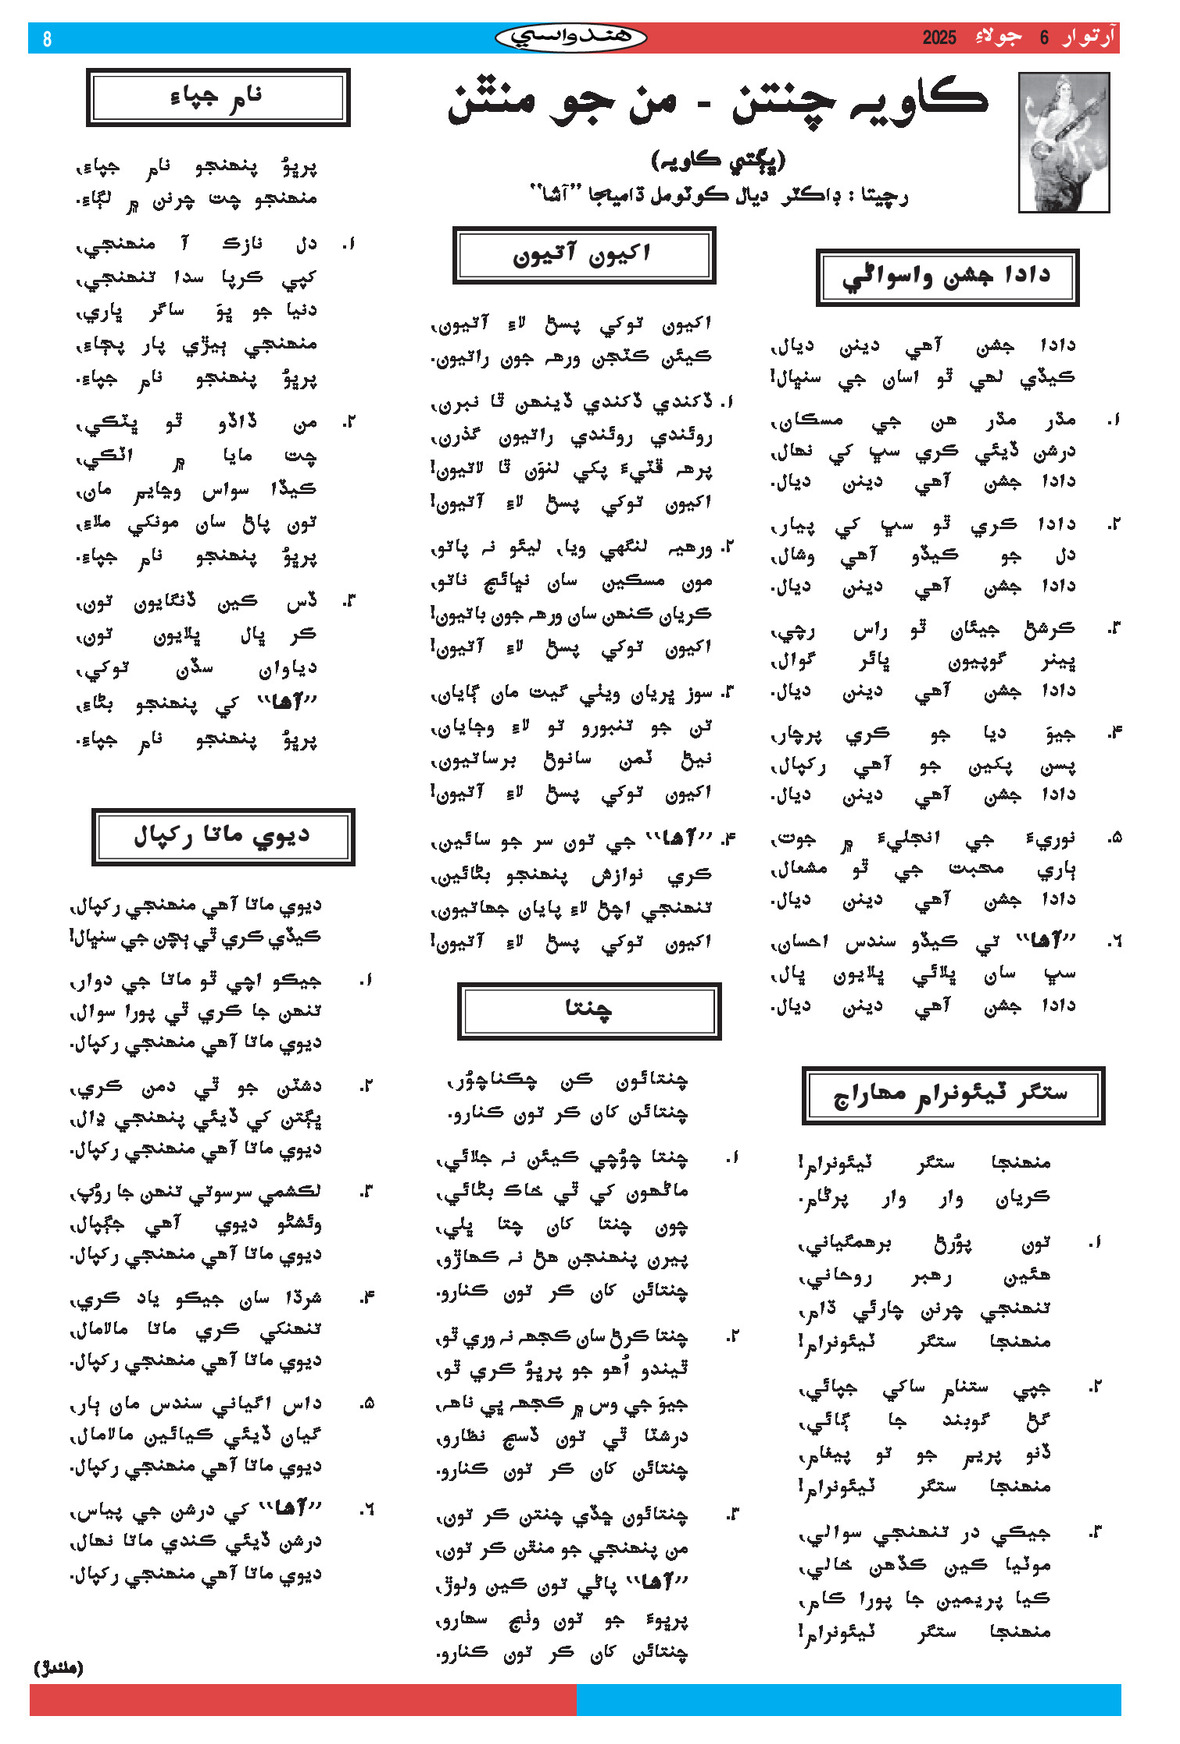 آرتوار 6 جولاءِ 2025
هندواسي
8
ڪاويہ چنتن - من جو منٿن
(ڀڳتي ڪاويہ)
رچيتا : ڊاڪٽر ديال ڪوٽومل ڌاميجا ”آشا“
دادا جشن واسواڻي
دادا جشن آهي دينن ديال،
ڪيڏي لهي ٿو اسان جي سنڀال!
۱. مڌر مڌر هن جي مسڪان،
درشن ڏيئي ڪري سڀ کي نهال،
دادا جشن آهي دينن ديال.
۲. دادا ڪري ٿو سڀ کي پيار،
دل جو ڪيڏو آهي وشال،
دادا جشن آهي دينن ديال.
۳. ڪرشڻ جيئان ٿو راس رچي،
ڀينر گوپيون ڀائر گوال،
دادا جشن آهي دينن ديال.
۴. جيوَ ديا جو ڪري پرچار،
پسن پکين جو آهي رکپال،
دادا جشن آهي دينن ديال.
۵. نوريءَ جي انجليءَ ۾ جوت،
ٻاري محبت جي ٿو مشعال،
دادا جشن آهي دينن ديال.
۶. ”آشا“ تي ڪيڏو سندس احسان،
سڀ سان ڀلائي ڀلايون ڀال،
دادا جشن آهي دينن ديال.
ستگر ٽيئونرام مهاراج
منهنجا ستگر ٽيئونرام!
ڪريان وار وار پرڻام.
۱. تون پوُرڻ برهمگياني،
هئين رهبر روحاني،
تنهنجي چرنن چارئي ڌام،
منهنجا ستگر ٽيئونرام!
۲. جپي ستنام ساکي جپائي،
گڻ گوبند جا ڳائي،
ڏنو پريم جو تو پيغام،
منهنجا ستگر ٽيئونرام!
۳. جيڪي در تنهنجي سوالي،
موٽيا ڪين ڪڏهن خالي،
ڪيا پريمين جا پورا ڪام،
منهنجا ستگر ٽيئونرام!
اکيون آتيون
اکيون توکي پسڻ لاءِ آتيون،
ڪيئن ڪٽجن ورهہ جون راتيون.
۱. ڏکندي ڏکندي ڏينهن ٿا نبرن،
روئندي روئندي راتيون گذرن،
پرهہ ڦٽيءَ پکي لنوَن ٿا لاتيون!
اکيون توکي پسڻ لاءِ آتيون!
۲. ورهيہ لنگهي ويا، ليئو نہ پاتو،
مون مسڪين سان نڀائج ناتو،
ڪريان ڪنهن سان ورهہ جون باتيون!
اکيون توکي پسڻ لاءِ آتيون!
۳. سوز ڀريان ويٺي گيت مان ڳايان،
تن جو تنبورو تو لاءِ وڄايان،
نيڻ ٽمن سانوڻ برساتيون،
اکيون توکي پسڻ لاءِ آتيون!
۴. ”آشا“ جي تون سر جو سائين،
ڪري نوازش پنهنجو بڻائين،
تنهنجي اچڻ لاءِ پايان جهاتيون،
اکيون توکي پسڻ لاءِ آتيون!
چنتا
چنتائون ڪن چڪناچوُر،
چنتائن کان ڪر تون ڪنارو.
۱. چنتا چوُچي ڪيئن نہ جلائي،
ماڻهون کي ٿي خاڪ بڻائي،
چون چنتا کان چتا ڀلي،
پيرن پنهنجن هڻ نہ ڪهاڙو،
چنتائن کان ڪر تون ڪنارو.
۲. چنتا ڪرڻ سان ڪجهہ نہ وري ٿو،
ٿيندو اُهو جو پرڀوُ ڪري ٿو،
جيوَ جي وس ۾ ڪجهہ ڀي ناهہ،
درشٽا ٿي تون ڏسج نظارو،
چنتائن کان ڪر تون ڪنارو.
۳. چنتائون ڇڏي چنتن ڪر تون،
من پنهنجي جو منٿن ڪر تون،
”آشا“ پاڻي تون ڪين ولوڙ،
پرڀوءَ جو تون وٺج سهارو،
چنتائن کان ڪر تون ڪنارو.
نام جپاءِ
پرڀوُ پنهنجو نام جپاءِ،
منهنجو چت چرنن ۾ لڳاءِ.
۱. دل نازڪ آ منهنجي،
کپي ڪرپا سدا تنهنجي،
دنيا جو ڀوَ ساگر ڀاري،
منهنجي ٻيڙي پار پڄاءِ،
پرڀوُ پنهنجو نام جپاءِ.
۲. من ڏاڍو ٿو ڀٽڪي،
چت مايا ۾ اٽڪي،
ڪيڏا سواس وڃايم مان،
تون پاڻ سان مونکي ملاءِ،
پرڀوُ پنهنجو نام جپاءِ.
۳. ڏس ڪين ڏنگايون تون،
ڪر ڀال ڀلايون تون،
دياوان سڏن توکي،
”آشا“ کي پنهنجو بڻاءِ،
پرڀوُ پنهنجو نام جپاءِ.
ديوي ماتا رکپال
ديوي ماتا آهي منهنجي رکپال،
ڪيڏي ڪري ٿي ٻچن جي سنڀال!
۱. جيڪو اچي ٿو ماتا جي دوار،
تنهن جا ڪري ٿي پورا سوال،
ديوي ماتا آهي منهنجي رکپال.
۲. دشٽن جو ٿي دمن ڪري،
ڀڳتن کي ڏيئي پنهنجي ڍال،
ديوي ماتا آهي منهنجي رکپال.
۳. لڪشمي سرسوتي تنهن جا روُپ،
وئشڻو ديوي آهي جڳپال،
ديوي ماتا آهي منهنجي رکپال.
۴. شرڌا سان جيڪو ياد ڪري،
تنهنکي ڪري ماتا مالامال،
ديوي ماتا آهي منهنجي رکپال.
۵. داس اگياني سندس مان ٻار،
گيان ڏيئي ڪيائين مالامال،
ديوي ماتا آهي منهنجي رکپال.
۶. ”آشا“ کي درشن جي پياس،
درشن ڏيئي ڪندي ماتا نهال،
ديوي ماتا آهي منهنجي رکپال.
(هلندڙ)